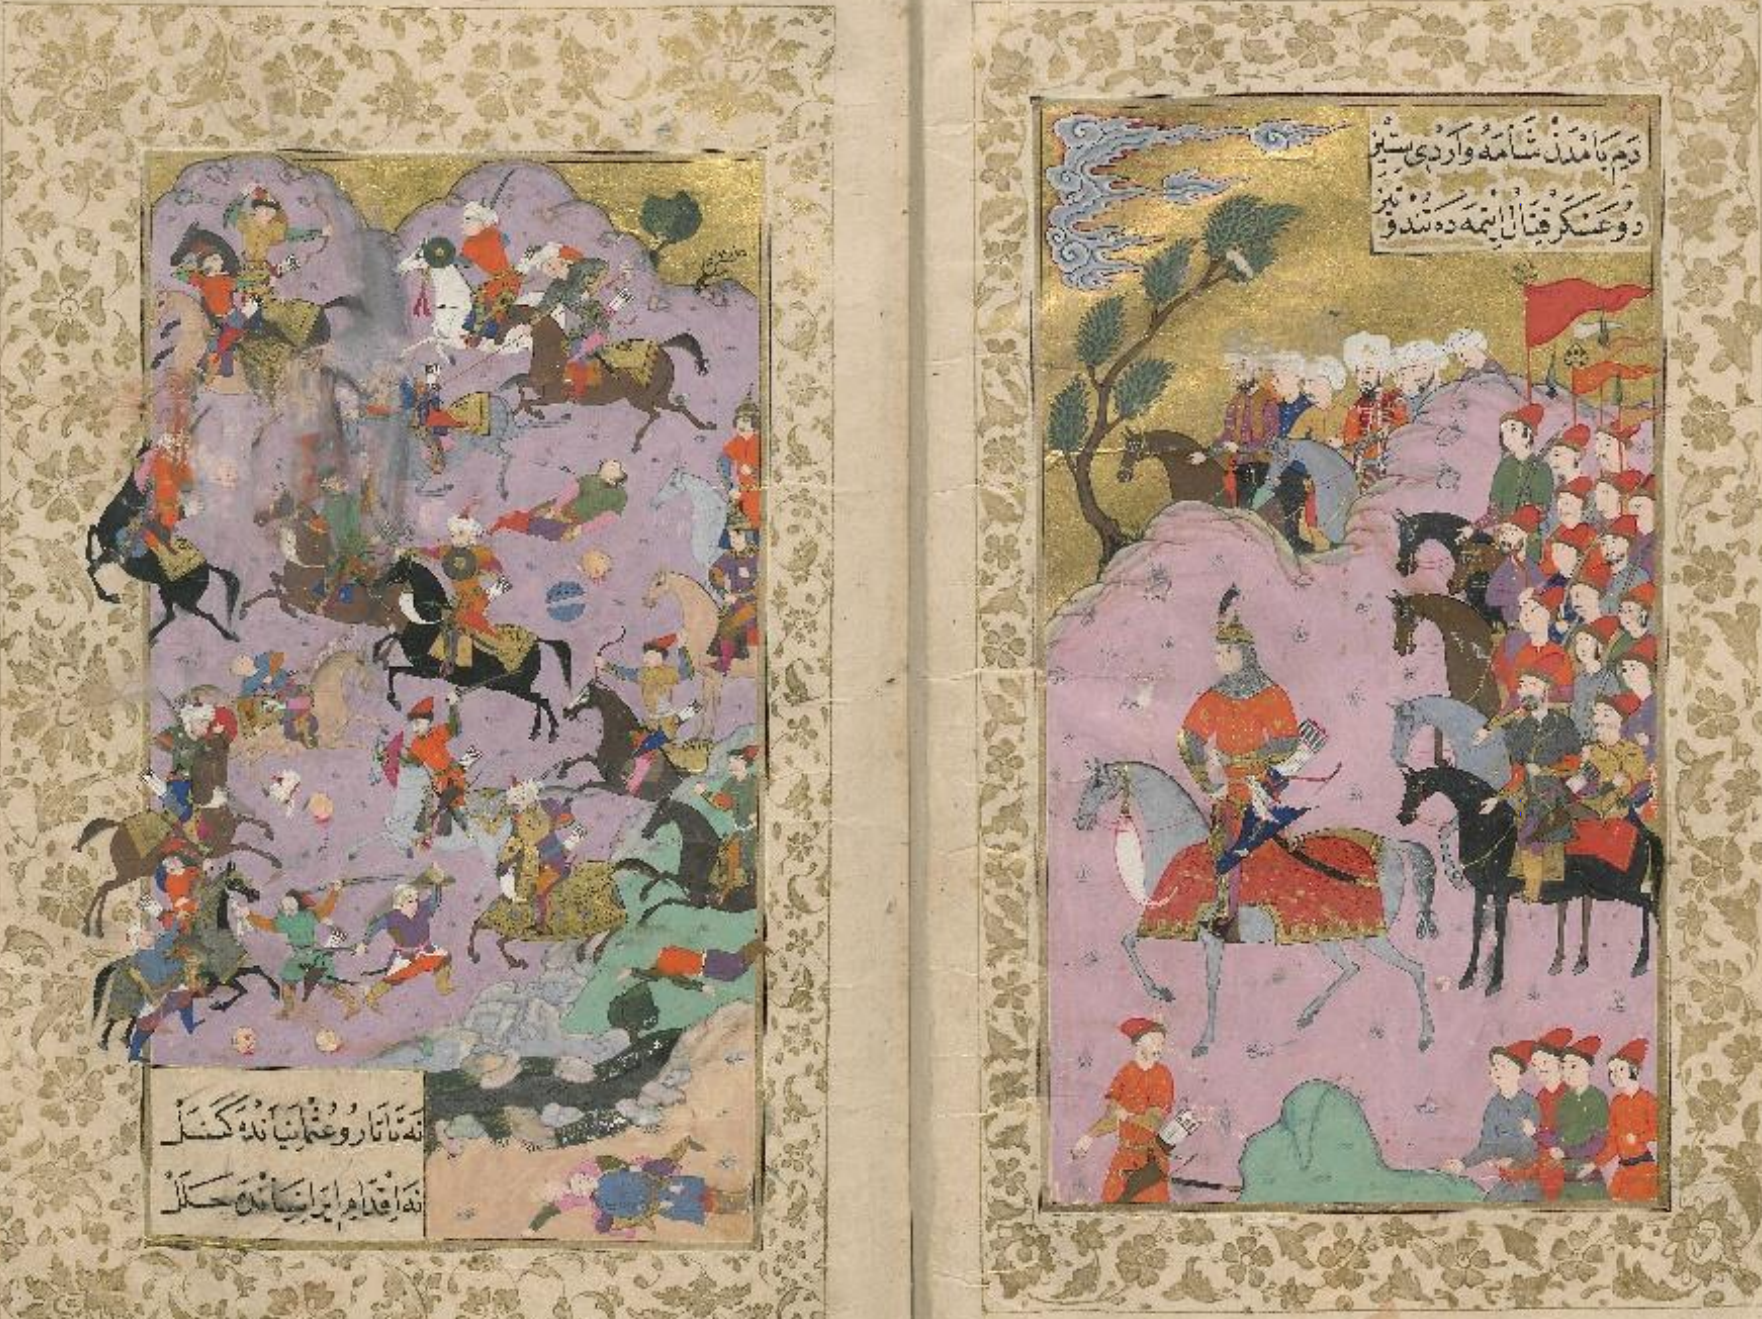 دم بامددن شامه واردی ستیز
دو عسکر قتال ایتمه ده تند و تیز
نه تاتار و عثمانیانده کسل
نه اقدام ایرانیانده خلل